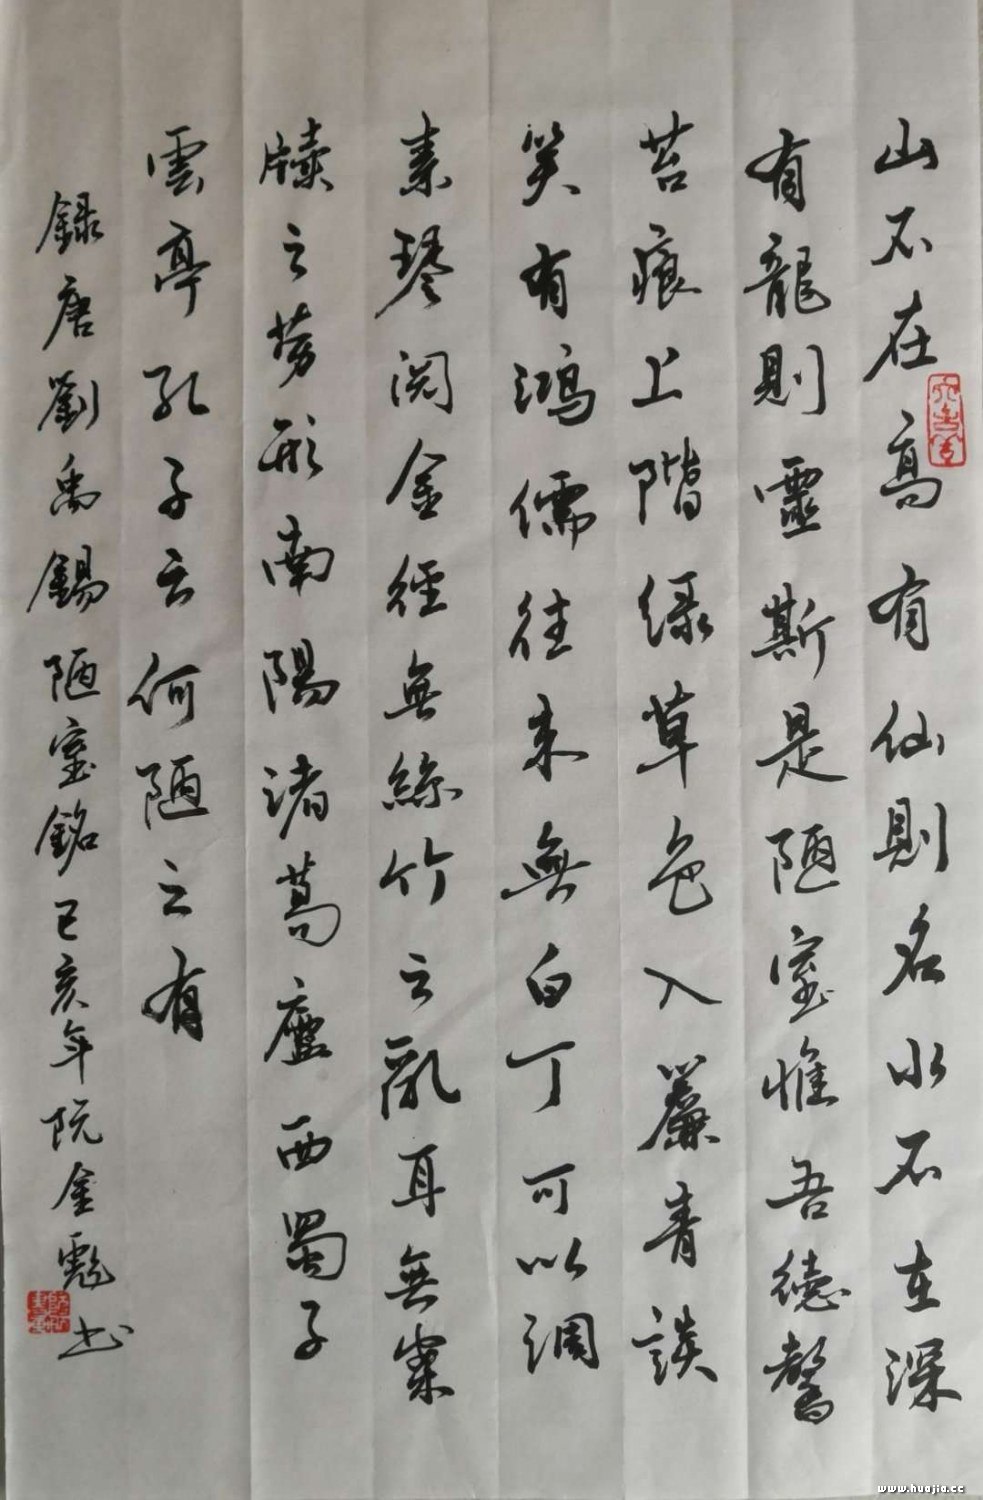 山不在高有仙則名水不在深
有龍則靈斯是陋室惟吾德馨
苔痕上階绿草色入簾青談
笑有鴻儒往来無白丁可以調
素琴阅金經無絲竹之亂耳無案
牘之劳形南陽诸葛廬西蜀子
雲亭孔子云何陋之有
録唐劉禹錫陋室銘己亥年阮金彪书
www.huajia.cc